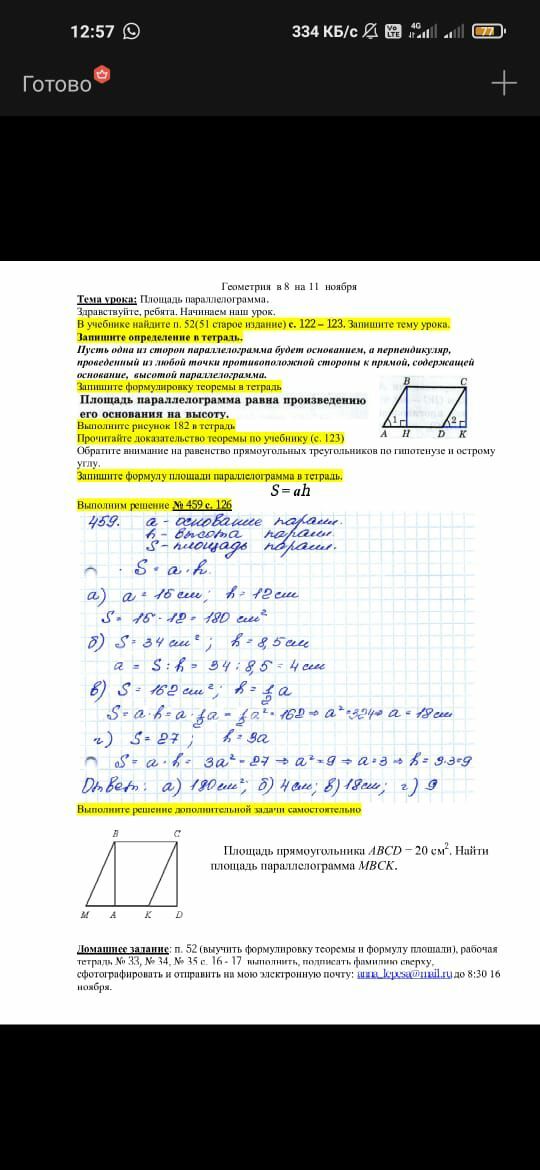 12:57
334 КБ/с Vo LTE 4G 77
Готово
Геометрия в 8 на 11 ноября
Тема урока: Площадь параллелограмма.
Здравствуйте, ребята. Начинаем наш урок.
В учебнике найдите п. 52(51 старое издание) с. 122 – 123. Запишите тему урока.
Запишите определение в тетрадь.
Пусть одна из сторон параллелограмма будет основанием, а перпендикуляр,
проведенный из любой точки противоположной стороны к прямой, содержащей
основание, высотой параллелограмма.
Запишите формулировку теоремы в тетрадь
Площадь параллелограмма равна произведению
его основания на высоту.
B C
1 2
A H D K
Выполните рисунок 182 в тетрадь
Прочитайте доказательство теоремы по учебнику (с. 123)
Обратите внимание на равенство прямоугольных треугольников по гипотенузе и острому
углу.
Запишите формулу площади параллелограмма в тетрадь.
S = ah
Выполним решение № 459 с. 126
459. a - основание парамм.
h - высота парамм.
S - площадь парамм.
S = a·h.
а) a = 15 см; h = 12 см
S = 15 · 12 = 180 см²
б) S = 34 см²; h = 8,5 см
a = S : h = 34 : 8,5 = 4 см
в) S = 162 см²; h = 1/2 a
S = a·h = a · 1/2 a = 1/2 a² = 162 ⇒ a² = 324 ⇒ a = 18 см
г) S = 27; h = 3a
S = a · h = 3a² = 27 ⇒ a² = 9 ⇒ a = 3 ⇒ h = 3·3=9
Ответ: а) 180 см²; б) 4 см; в) 18 см; г) 9
Выполните решение дополнительной задачи самостоятельно
B C
M A K D
Площадь прямоугольника ABCD = 20 см². Найти
площадь параллелограмма MBCK.
Домашнее задание: п. 52 (выучить формулировку теоремы и формулу площади), рабочая
тетрадь № 33, № 34, № 35 с. 16 - 17 выполнить, подписать фамилию сверху,
сфотографировать и отправить на мою электронную почту: anna_lepesa@mail.ru до 8:30 16
ноября.